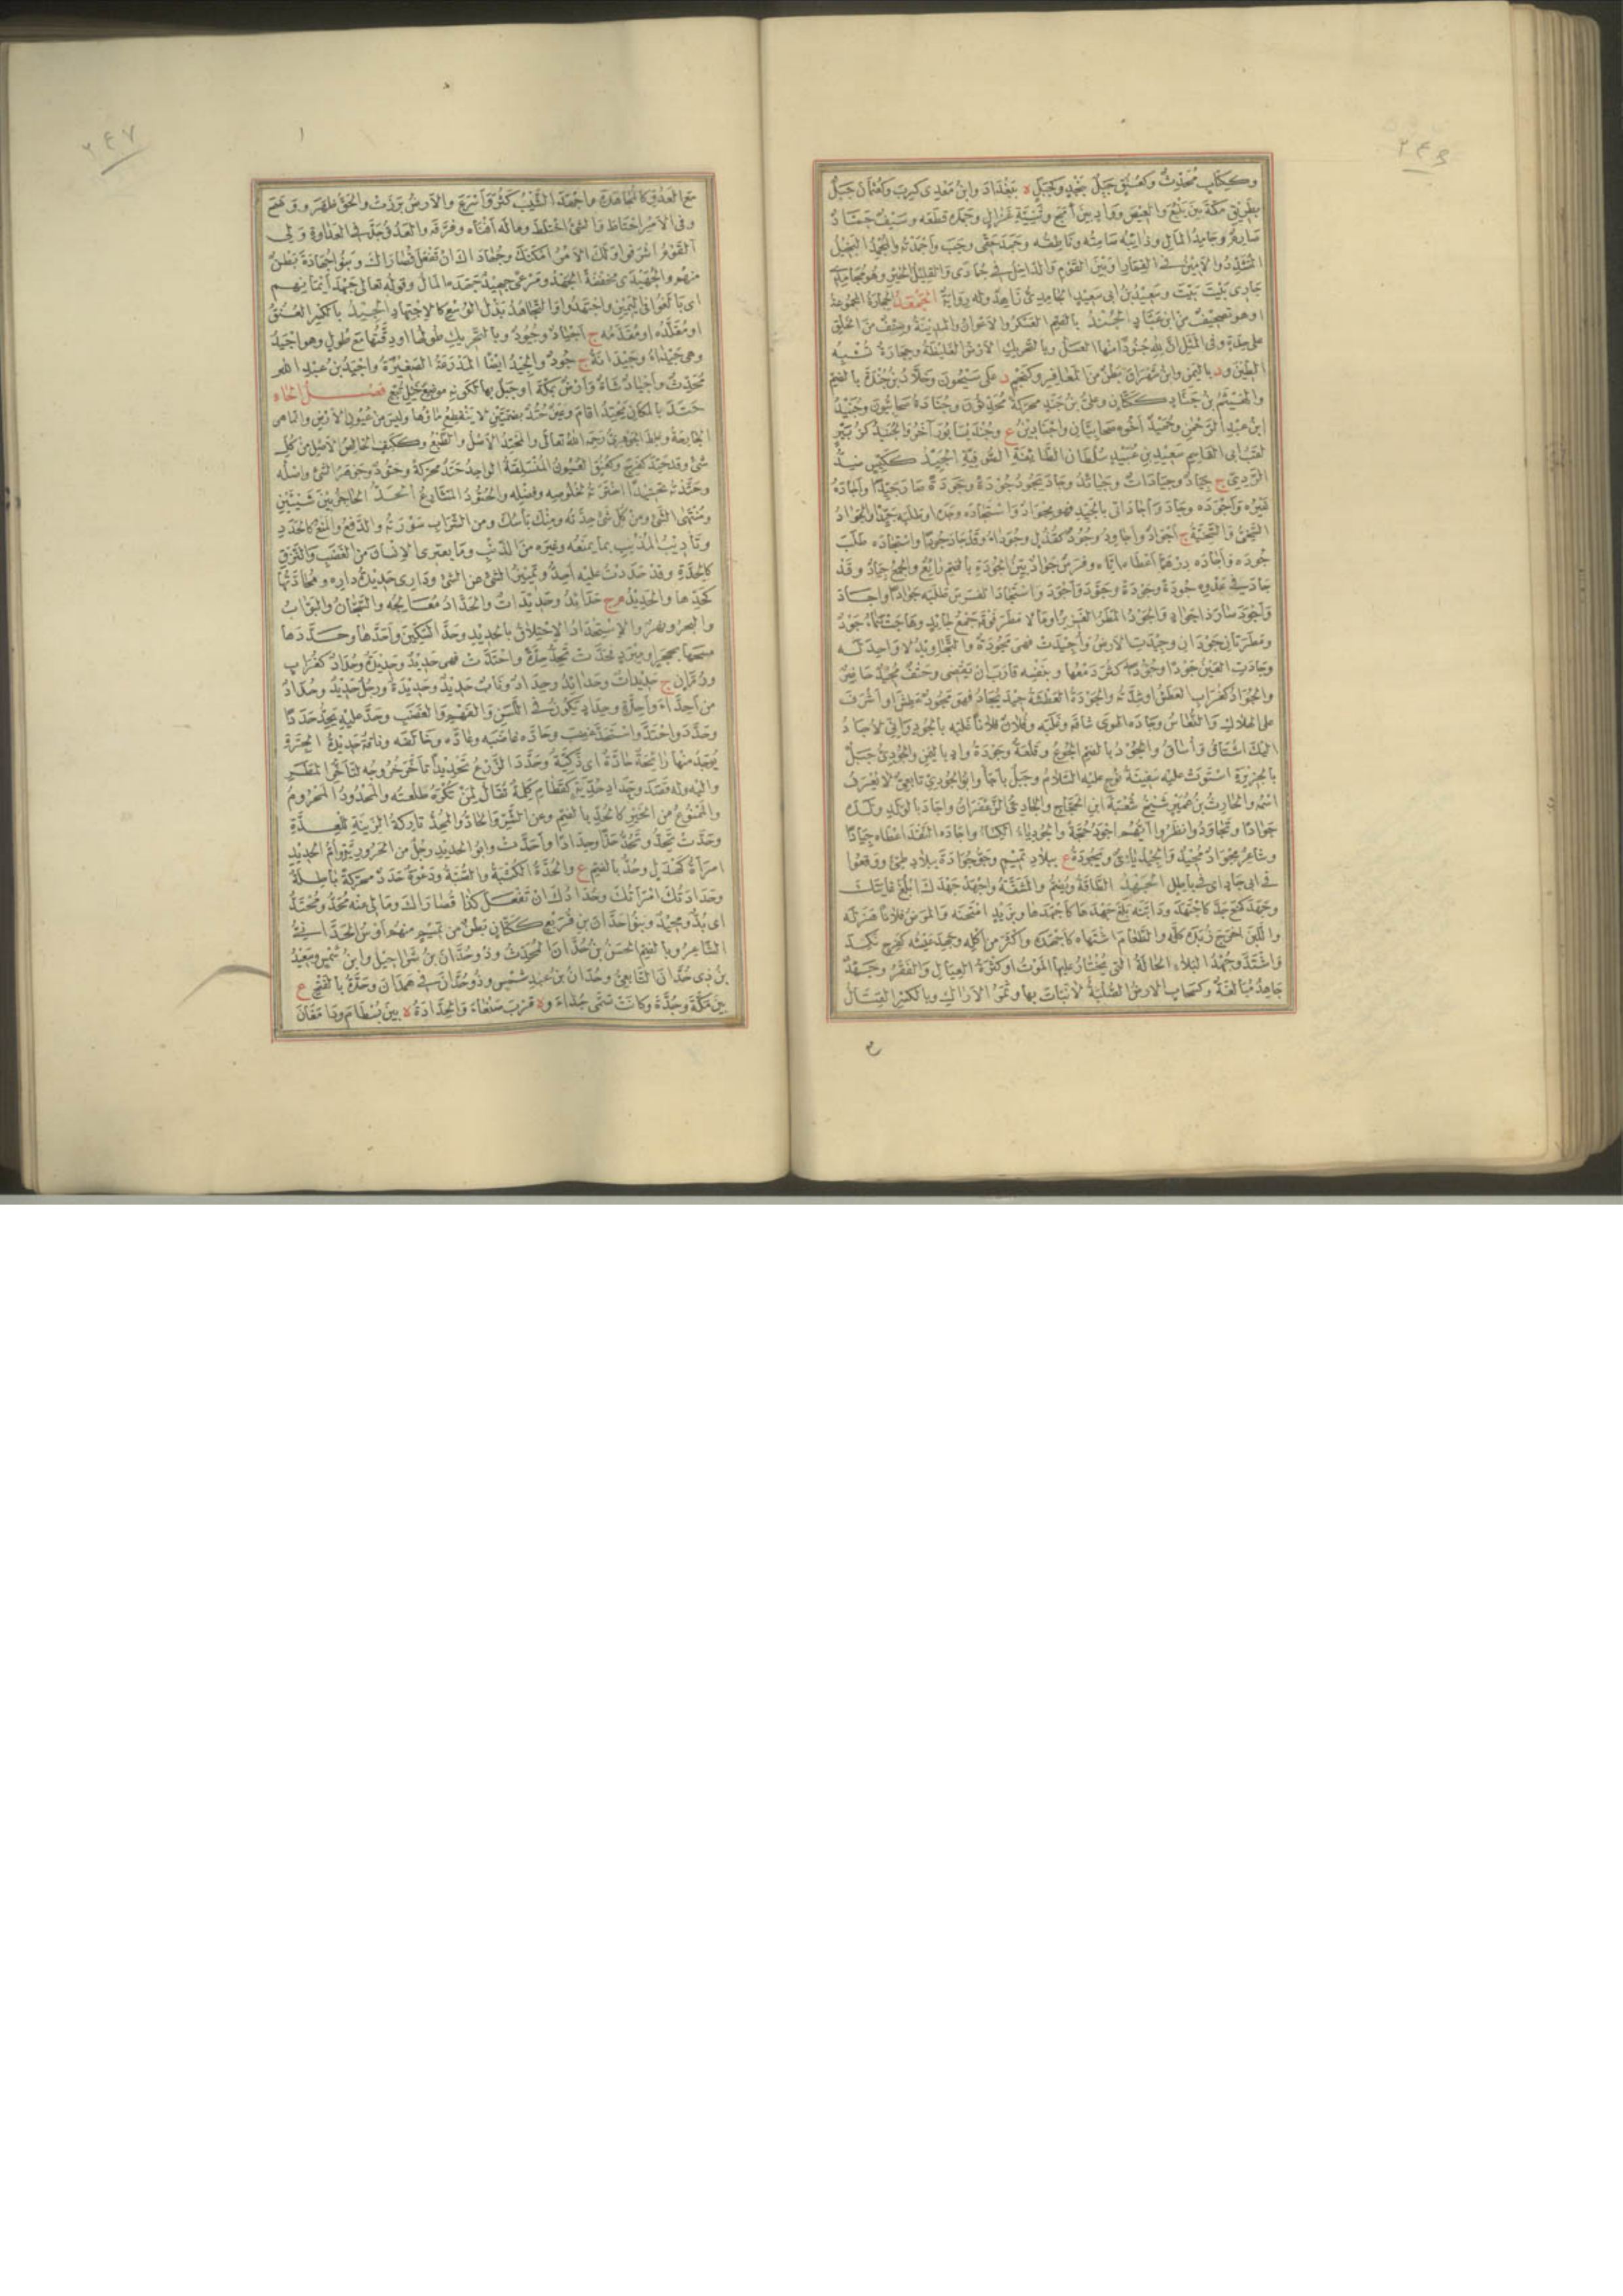 ٢٤٦
وككتاب محدث وكعنق جبل بنجد وكجبل ه ببغداد وابن معدى كرب وكعثمان جبل
بطريق مكة بين ينبع والعيص وواد بين أمج وثنية غزال وجمده قطعه وسيف جماد
صارم وجامد المال وذائبه صامته وناطقه وجمد حقى وجب وأجمدته والمجمد البخيل
المتشدد والامين فى القمار او بين القوم والداخل فى جمادى والقليل الخير وهو مجامدى
جارى بيت بيت وسعيد بن ابى سعيد الجامدى زاهد وله رواية الجمعد الحجارة المجموعة
او هو تصحيف من ابن عباد الجند بالضم العسكر والاعوان والمدينة وصنف من الخلق
على حدة وفى المثل ان لله جنودا منها العسل وبالتحريك الارض الغليظة وحجارة تشبه
الطين ود باليمن وابن شهران بطن من المعافر وكنجم د على سيحون وخلاد بن جندة بالضم
والهيثم بن جناد ككتان وعلى بن جند محركة محدثون وجنادة صحابيون وجنيد
ابن عبد الرحمن وحميد أخوه صحابيان واجنادين ع وجنديسابور آخر والجنيد كزبير
لقب ابى القاسم سعيد بن عبيد سلطان الطائفة الصوفية الجيد ككيس ضد
الردى ج جياد وجيادات وجيائد وجاد يجود جودة وجودة صار جيدا وأجاده
غيره وأجوده وجاد وأجاد اتى بالجيد فهو مجواد واستجاده وجده او طلبه جيدا والجواد
السخى والسخية ج أجواد وأجاود وجود كقذل وجوداء وقد جاد جودا واستجاده طلب
جوده وأجاده درهما أعطاه اياه وفرس جواد بين الجودة بالضم رائع والجمع جياد وقد
جاد فى عدوه جودة وجودة وجود وأجود واستجاد الفرس طلبه جوادا واجاد
وأجود صار ذا جواد والجود المطر الغزير او ما لا مطر فوقه جمع جائد وهاجت سماء جود
ومطرتان جودان وجيدت الارض وأجيدت فهى مجودة والتجاويد لا واحد له
وجادت العين جودا وجؤودا كثر دمعها وبنفسه قارب ان يقضى وحتف مجيد حاضر
والجواد كغراب العطش او شدته والجودة العطشة جيد يجاد فهو مجود عطش او أشرف
على الهلاك والنعاس وجاده الهوى شاقه وغلبه وفلان فلانا غلبه بالجود وانى لأجاد
اليك اشتاق وأساق والجود بالضم الجوع وقلعة وجودة واد باليمن والجودى جبل
بالجزيرة استوت عليه سفينة نوح عليه السلام وجبل بأجأ وابو الجودى تابعى لا يعرف
اسمه والحارث بن عمير شيخ شعبة ابن الحجاج والجادى الزعفران واجاد بالولد ولده
جوادا وتجاودوا نظروا ايهم اجود حجة والجودياء الكساء واجاده النقد اعطاه جيادا
وشاعر مجواد مجيد والجيد ياتى ويجودة ع ببلاد تميم وجوجوادة ببلاد طيئ ووقعوا
فى ابى جاد اى فى باطل الجهد الطاقة ويضم والمشقة واجهد جهدك ابلغ غايتك
وجهد كمنع جد كاجتهد ودابته بلغ جهدها كأجهدها وبزيد امتحنه والمرض فلانا هزله
واللبن اخرج زبده كله والطعام اشتهاه كأجهده واكثر من اكله وجهد عيشه كفرح نكد
واشتد وجهد البلاء الحالة التى يختار عليها الموت او كثرة العيال والفقر وجهد
جاهد مبالغة وكسحاب الارض الصلبة لا نبات بها وثمر الاراك وبالكسر القتال
٢٤٧
مع العدو كالمجاهدة واجهد الشيب كثر وأسرع والارض برزت والحق ظهر ووضح
وفى الامر احتاط والشئ اختلط وماله أفناه وفرقه والعدو جد فى العداوة ولى
القوم اشرفوا ولك الامر امكنك وجهاداك ان تفعل قصاراك وبنو جهادة بطن
منهم والجهيدى مخففة الجهد ومرعى جهيد جهده المال وقوله تعالى جهد أيمانهم
اى بالغوا فى اليمين واجتهدوا والتجاهد بذل الوسع كالاجتهاد الجيد بالكسر العنق
او مقلده او مقدمه ج أجياد وجيود وبالتحريك طولها او دقتها مع طول وهو اجيد
وهى جيداء وجيدانة ج جود والجيد ايضا المدرعة الصغيرة واجيد بن عبد الله
محدث وأجياد شاة وأرض بمكة او جبل بها لكونه موضع خيل تبع فصل الحاء
حتد بالمكان يحتد اقام وعين حتد بضمتين لا ينقطع ماؤها وليس من عيون الارض وانما هى
الجارحة وغلط الجوهرى رحمه الله تعالى والمحتد الاصل والطبع وككتف الخالص الاصل من كل
شئ وقد حتد كفرح وكعنق العيون المنسلقة الواحد حتد محركة وحتود وجوهر الشئ واصله
وحتدته تحتيدا اخترته لخلوصه وفضله والحتود المشارع الحد الحاجز بين شيئين
ومنتهى الشئ ومن كل شئ حدته ومنك بأسك ومن الشراب سورته والدفع والمنع كالحدد
وتأديب المذنب بما يمنعه وغيره من الذنب وما يعترى الانسان من الغضب والنزق
كالحدة وقد حددت عليه احد وتمييز الشئ عن الشئ ودارى حديدة داره ومحادتها
كحدها والحديد م ج حدائد وحديدات والحداد معالجه والسجان والبواب
والبحر ونهر والاستحداد الاحتلاق بالحديد وحد السكين وأحدها وحددها
مسحها بحجر او مبرد فحدت تحد حدة واحتدت فهى حديد وحديدة وحداد كغراب
ورمان ج حديدات وحدائد وحداد وناب حديد وحديدة ورجل حديد وحداد
من أحداء وأحدة وحداد يكون فى اللسن والفهم والغضب وحد عليه يحد حددا
وحدد واحتد واستحد غضب وحاده غاضبه وعاداه وخالفه وناقة حديدة الجرة
يوجد منها رائحة حادة اى ذكية وحدد الزرع تحديدا تأخر خروجه لتأخر المطر
واليه وله قصد وحداد حديه كقطام كلمة تقال لمن تكره طلعته والمحدود المحروم
والممنوع من الخير كالحد بالضم وعن الشر والحاد والمحد تاركة الزينة للعدة
وحدت تحد وتحد حدا وحدادا وأحدت وابو الحديد رجل من الحرورية وأم الحديد
امرأة كهدل وحد بالضم ع والحدة الكثبة والصبة ودعوة حدد محركة باطلة
وحدادتك امرأتك وحدادك ان تفعل كذا قصاراك وما لى عنه محد ومحتد
اى بد ومحيد وبنو حدان بن قريع ككتان بطن من تميم منهم أوس الحدانى
الشاعر وبالضم الحسن بن حدان المحدث وذو حدان بن شراحيل وابن شمس وسعيد
بن ذى حدان التابعى وحدان بن عبد شمس وذو حدان فى همدان وحدة بالفتح ع
بين مكة وجدة وكانت تسمى حداء وه قرب صنعاء والحدادة ه بين بسطام ودامغان